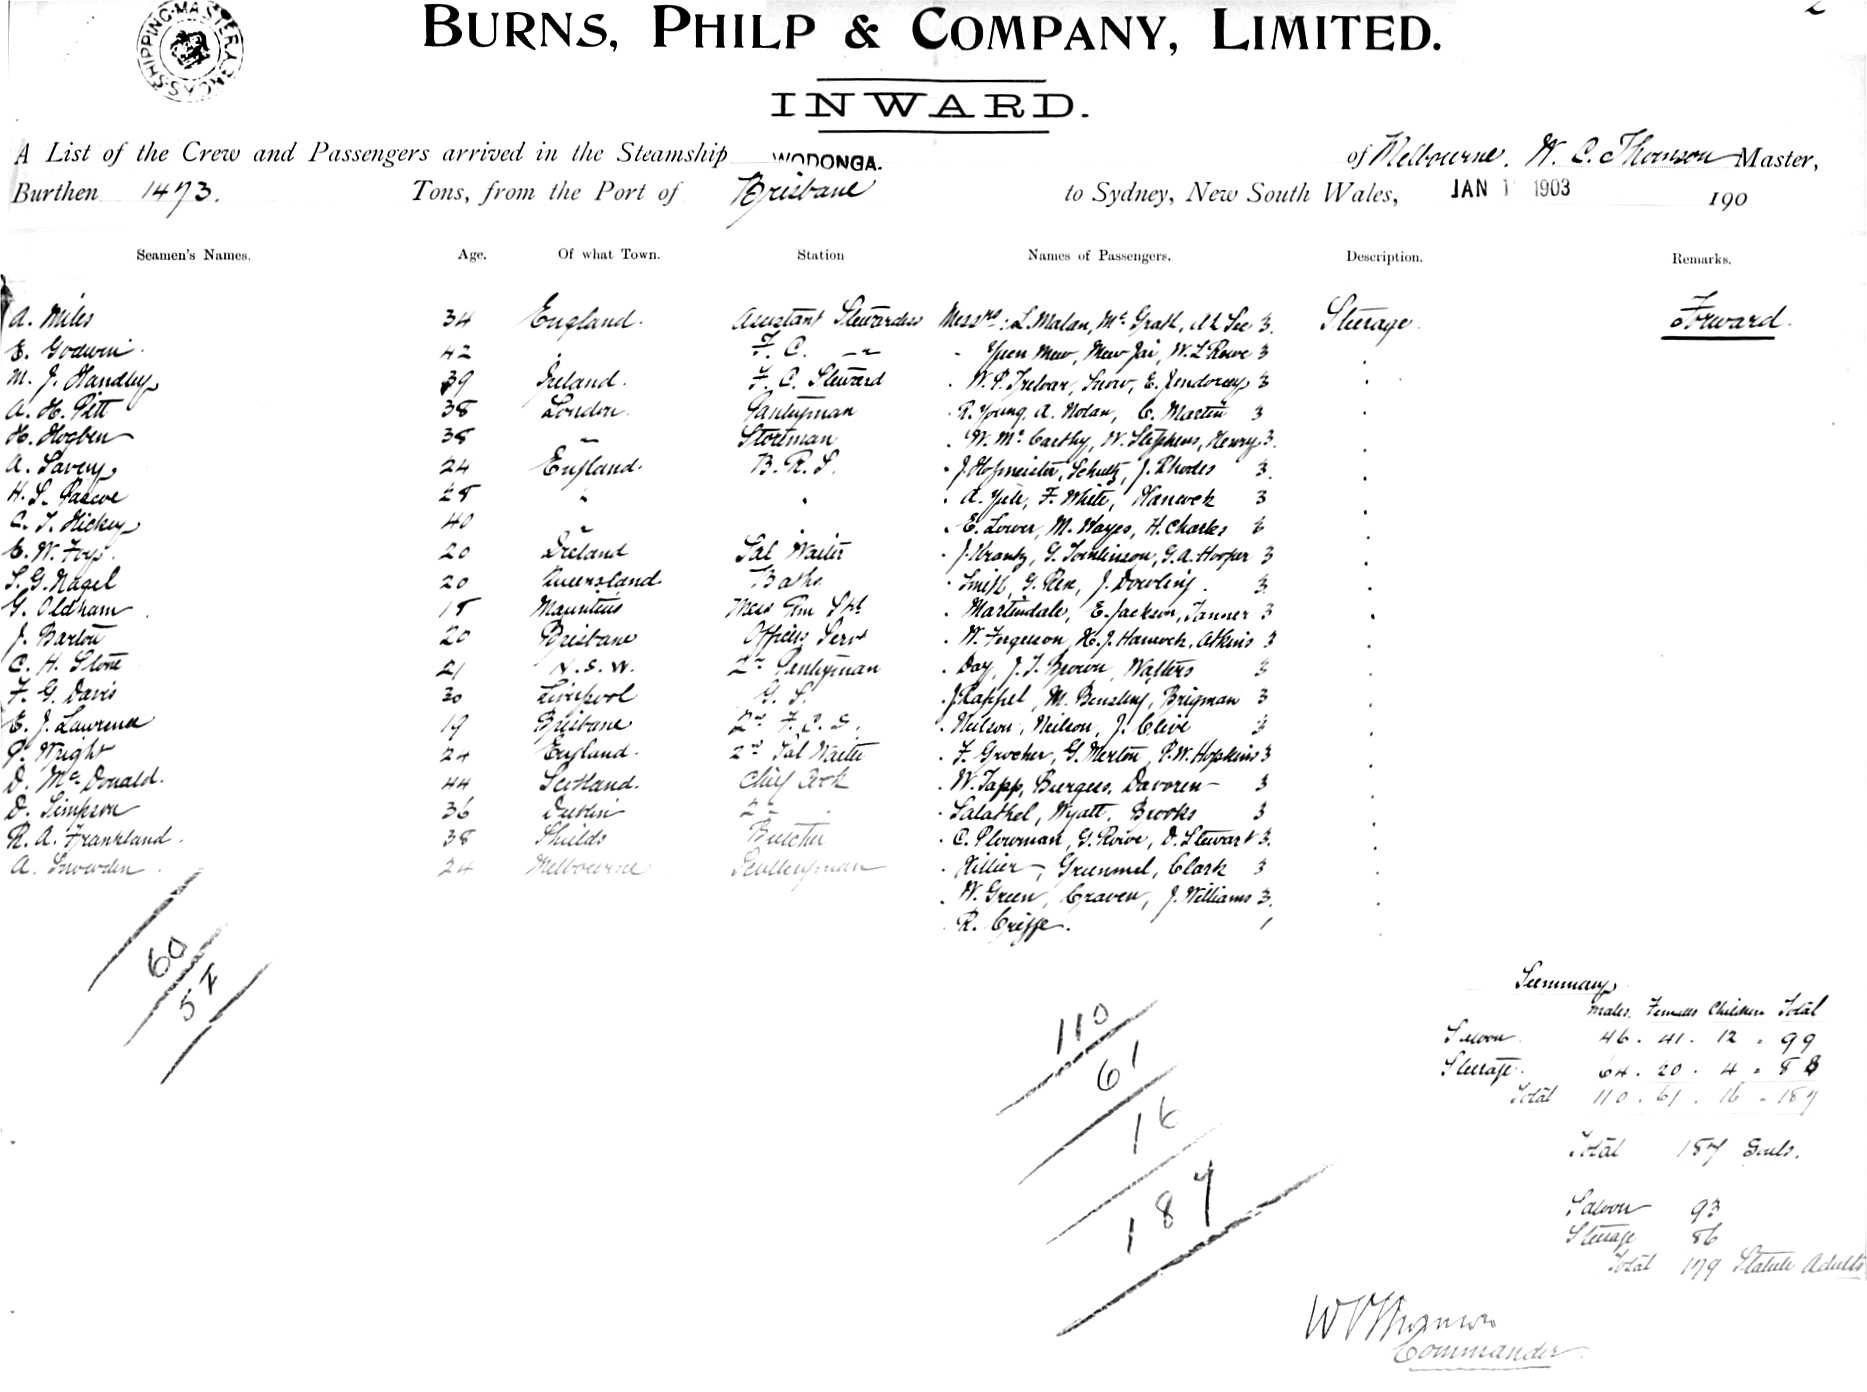 SHIPPING MASTER
BURNS, PHILP & COMPANY, LIMITED.
INWARD.
A List of the Crew and Passengers arrived in the Steamship WODONGA. of Melbourne. W. C. Thomson Master,
Burthen 1473. Tons, from the Port of Brisbane to Sydney, New South Wales, JAN 1 1903 190
Seamen's Names. Age. Of what Town. Station Names of Passengers. Description. Remarks.
A. Miles 34 England. Assistant Stewardess Messrs. L. Malan, Mc Grath, Ah See 3. Steerage. Forward.
E. Godwin 42 " F. C. " " Yuen Mew, Mew Jai, W. L Rowe 3
M. J. Handley 39 Ireland. F. C. Steward W. P. Treloar, Snow, E. 3
A. H. Pitt 38 London. Pantryman R. Young, A. Nolan, C. Martin 3
H. Hogben 38 " W. Mc Carthy, W. Stephens, Henry 3.
A. Savery 24 England. B. R. S. J. Hofmeister, Schultz, J. Rhodes 3.
H. S. Pascoe 28 " " A. Yule, F. White, Hancock 3
C. T. Hickey 40 " E. Lower, M. Hayes, H. Charles 3
E. W. Foys. 20 Ireland Sal Waiter J. Krantz, G. Tomlinson, G. A. Hooper 3
S. G. Nagel 20 Queensland Baths Smith, G. Rex, J. Dowling. 3.
G. Oldham 18 Mauritius Mess Rm Std Martindale, E. Jackson, Tanner 3
J. Barton 20 Brisbane Officers Servt W. Ferguson, H. J. Hancock, Atkins 3
C. H. Stone 21 N. S. W. 2nd Pantryman Day, J. T. Brown, Walters 3
F. G. Davis 30 Liverpool G. S. J. Rappel, M. Bensley, Brigman 3
E. J. Lawrence 19 Brisbane 2nd F. C. S. Neilson, Neilson, J. Clive 3
P. Wright 24 England. 2nd Sal Waiter F. Grocher, G. Merton, P. W. Hopkins 3
D. Mc Donald. 44 Scotland. Chief Cook W. Tapp, Burgess, Davoren 3
D. Simpson 36 Dublin 2nd " Salathiel, Wyatt, Brooks 3
R. A. Frankland. 38 Shields Butcher C. Plowman, G. Rowe, D. Stewart 3.
A. Snowden 24 Melbourne Sculleryman Hillier, Clark 3
W. Green, Craven, J. Williams 3.
R. 1
60
57
110
61
16
187
Summary
Males. Females Children Total
Saloon. 46. 41. 12 . 99
Steerage. 64. 20. 4 . 88
Total 110. 61. 16 . 187
Total 187 Souls.
Saloon 93
Steerage 86
Total 179 Statute Adults
W C Thomson
Commander